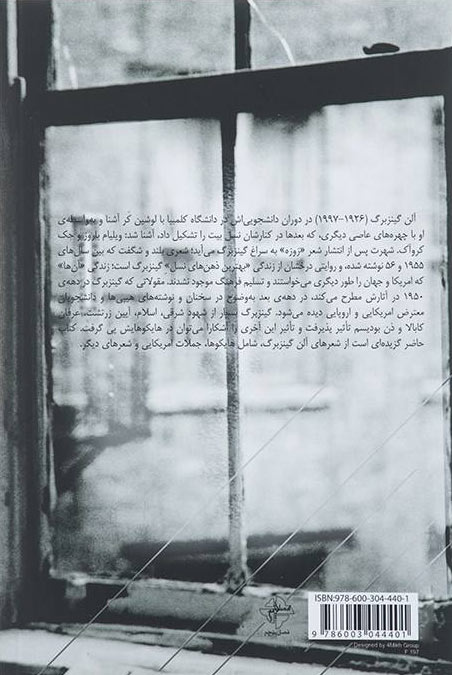 آلن گینزبرگ (۱۹۲۶-۱۹۹۷) در دوران دانشجویی‌اش در دانشگاه کلمبیا با لوشین کَر آشنا و به‌واسطه‌ی
او با چهره‌های عاصی دیگری، که بعدها در کنارشان نسل بیت را تشکیل داد، آشنا شد؛ ویلیام باروز و جک
کرواک. شهرت پس از انتشار شعر «زوزه» به سراغ گینزبرگ می‌آید؛ شعری بلند و شگفت که بین سال‌های
۱۹۵۵ و ۵۶ نوشته شده، و روایتی درخشان از زندگی «بهترین ذهن‌های نسل» گینزبرگ است؛ زندگی «آن‌ها»
که امریکا و جهان را طور دیگری می‌خواستند و تسلیم فرهنگ موجود نشدند. مقولاتی که گینزبرگ در دهه‌ی
۱۹۵۰ در آثارش مطرح می‌کند، در دهه‌ی بعد به‌وضوح در سخنان و نوشته‌های هیپی‌ها و دانشجویان
معترض امریکایی و اروپایی دیده می‌شود. گینزبرگ بسیار از شهود شرقی، اسلام، آیین زرتشت، عرفان
کابالا و ذن بودیسم تأثیر پذیرفت و تأثیر این آخری را آشکارا می‌توان در هایکوهایش پی گرفت. کتاب
حاضر گزیده‌ای است از شعرهای آلن گینزبرگ، شامل هایکوها، جملات آمریکایی و شعرهای دیگر.
ISBN:978-600-304-440-1
9 786003 044401
Designed by 4Mikh Group
F 197